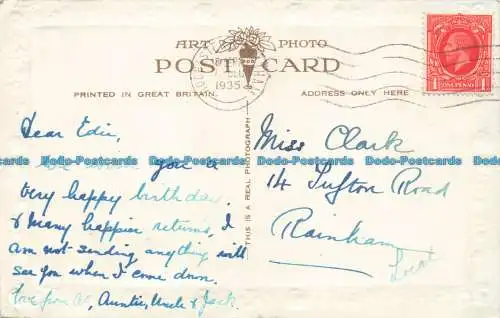 ART PHOTO
POST CARD
PRINTED IN GREAT BRITAIN.
ADDRESS ONLY HERE
1935
1 ONE PENNY 1
THIS IS A REAL PHOTOGRAPH
Dear Edie,
you a
very happy birthday,
& many happier returns, I
am not sending anything will
see you when I come down.
love from all, Auntie, Uncle & Jack.
Miss Clark
14 Tufton Road
Rainham
Dodo-Postcards Dodo-Postcards Dodo-Postcards Dodo-Postcards Dodo-Postcards